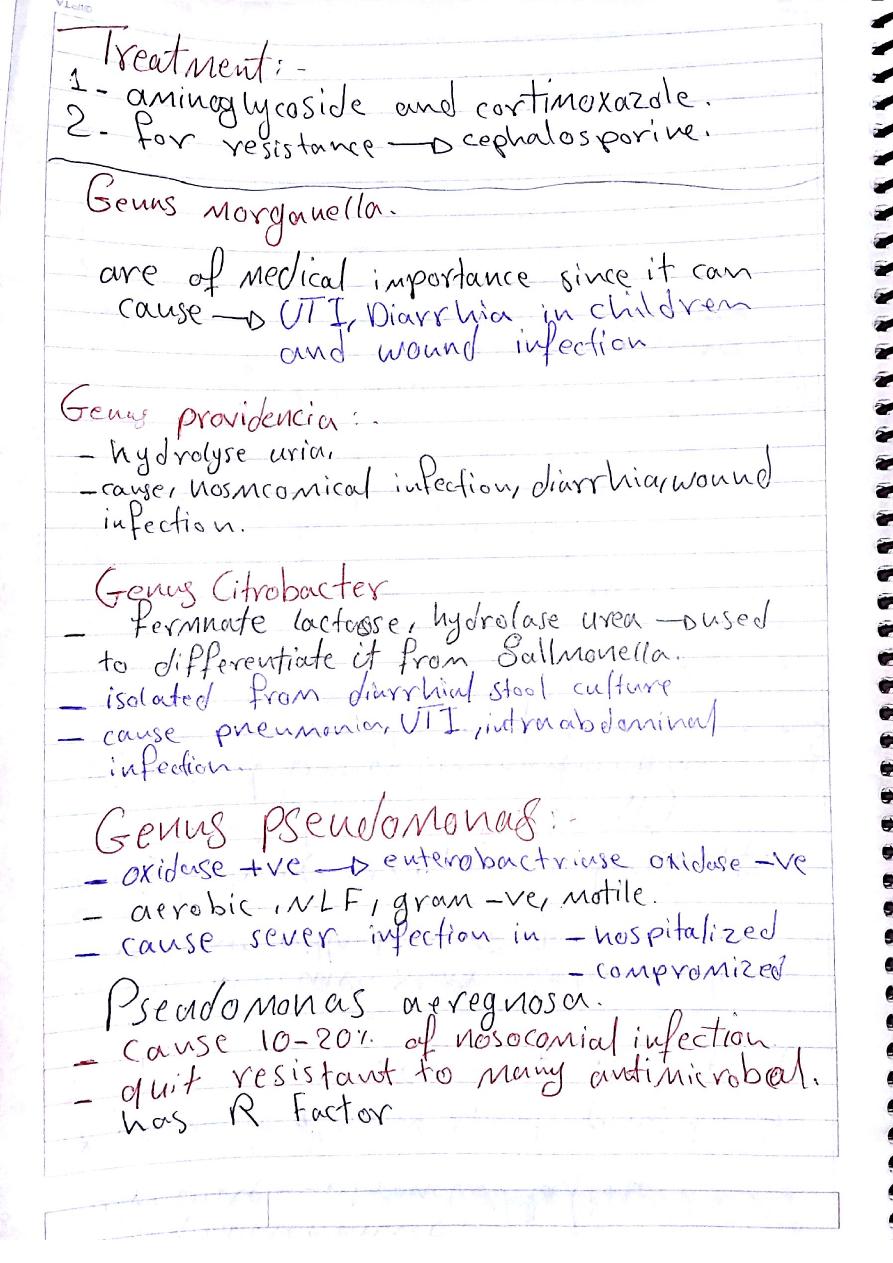 Treatment:-
1- aminoglycoside and cortimoxazole.
2- for resistance → cephalosporine.
Genus Morganella.
are of medical importance since it can
cause → UTI, Diarrhia in children
and wound infection
Genus providencia:.
- hydrolyse uria,
- cause, nosmcomical infection, diarrhia, wound
infection.
Genus Citrobacter
- fermnate lactosse, hydrolase urea → used
to differentiate it from Sallmonella.
- isolated from diarrhial stool culture
- cause pneumonia, UTI, intraabdominal
infection.
Genus pseudomonas:-
- oxiduse +ve → enterobactriuse oxiduse -ve
- aerobic, NLF, gram -ve, motile.
- cause sever infection in - hospitalized
- compromized
Pseudomonas aeregnosa.
- cause 10-20% of nosocomial infection
- quit resistant to many antimicrobal.
has R Factor